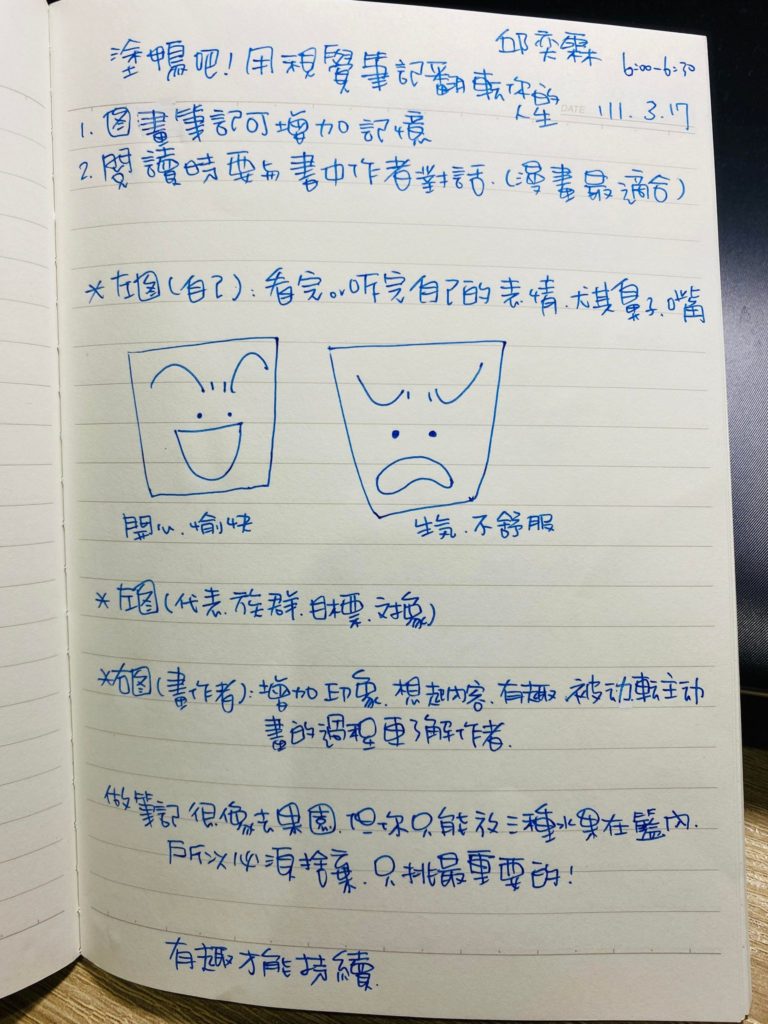 邱奕霖 6:00-6:30
塗鴨吧!用視覺筆記翻転你的
人生 DATE 111.3.17
1. 图畫筆記可增加記憶
2. 閱讀時要与書中作者對話.(漫畫最適合)
*左图(自己):看完or听完自己的表情.尤其鼻子.嘴
開心.愉快
生気.不舒服
*左图(代表.族群.目標.対象)
*右图(畫作者):增加印象.想起內容.有趣.被动転主动
畫的過程更了解作者.
做筆記很像去果園.但你只能放三種水果在籃內.
所以必須捨棄.只挑最重要的!
有趣才能持續.